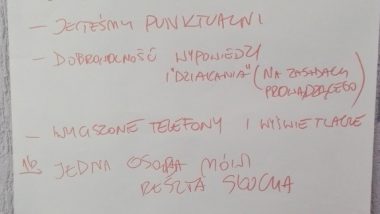 - JESTEŚMY PUNKTUALNI
- DOBROWOLNOŚĆ WYPOWIEDZI
I "DZIAŁANIA" (NA ZASADACH
PROWADZĄCEGO)
- WYCISZONE TELEFONY I WYŚWIETLACZE
JEDNA OSOBA MÓWI
RESZTA SŁUCHA